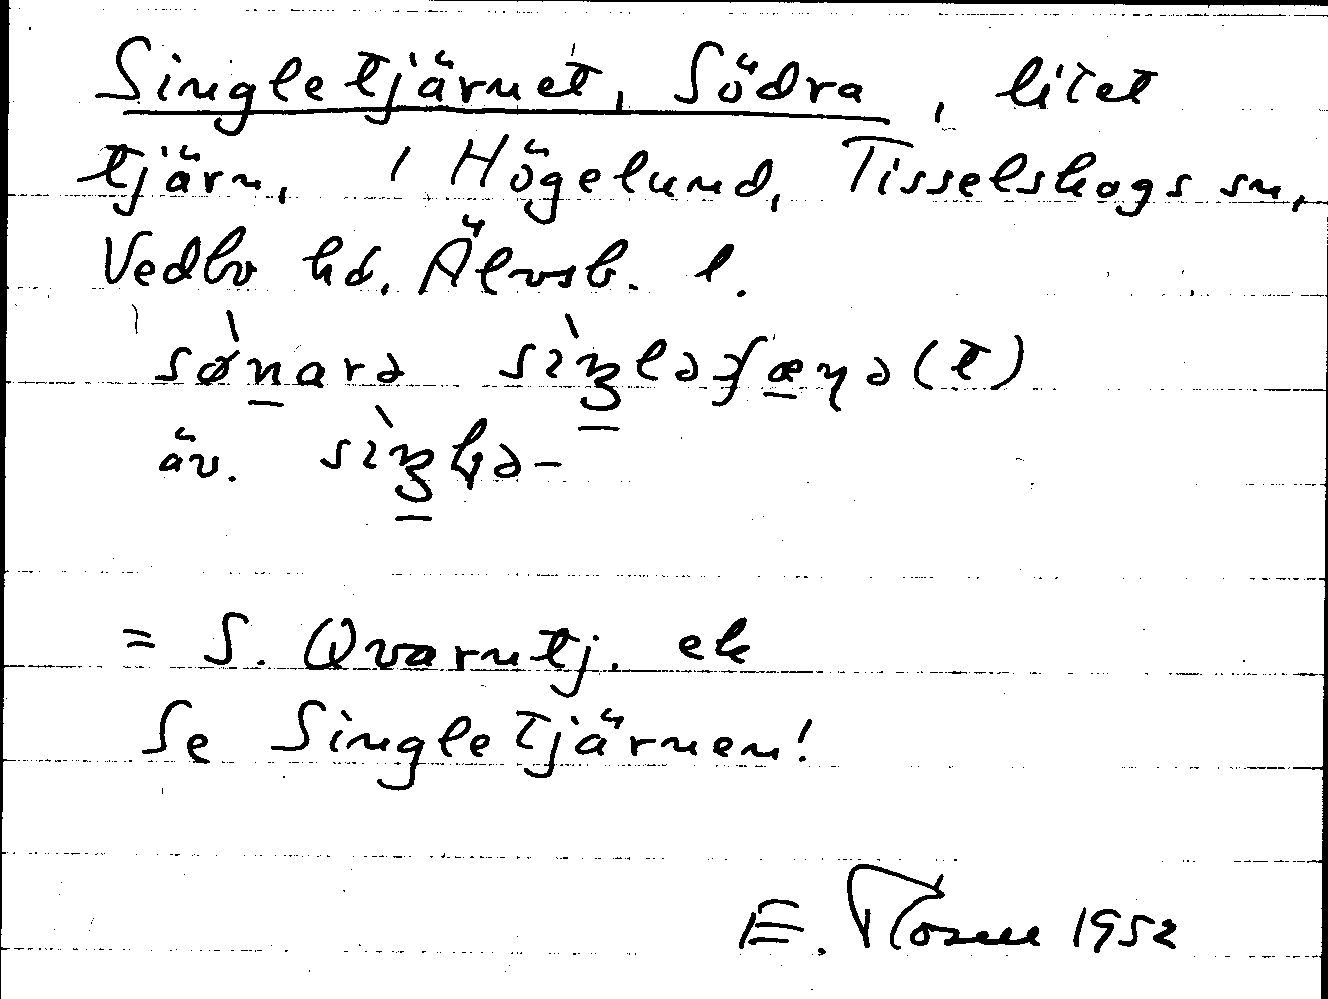 Singletjärnet, Södra, litet
tjärn, i Högelund, Tisselskogs sn,
Vedbo hd. Älvsb. l.
sø̀narə
äv.
= S. Qvarntj. ek
Se Singletjärnen!
E. Rosell 1952